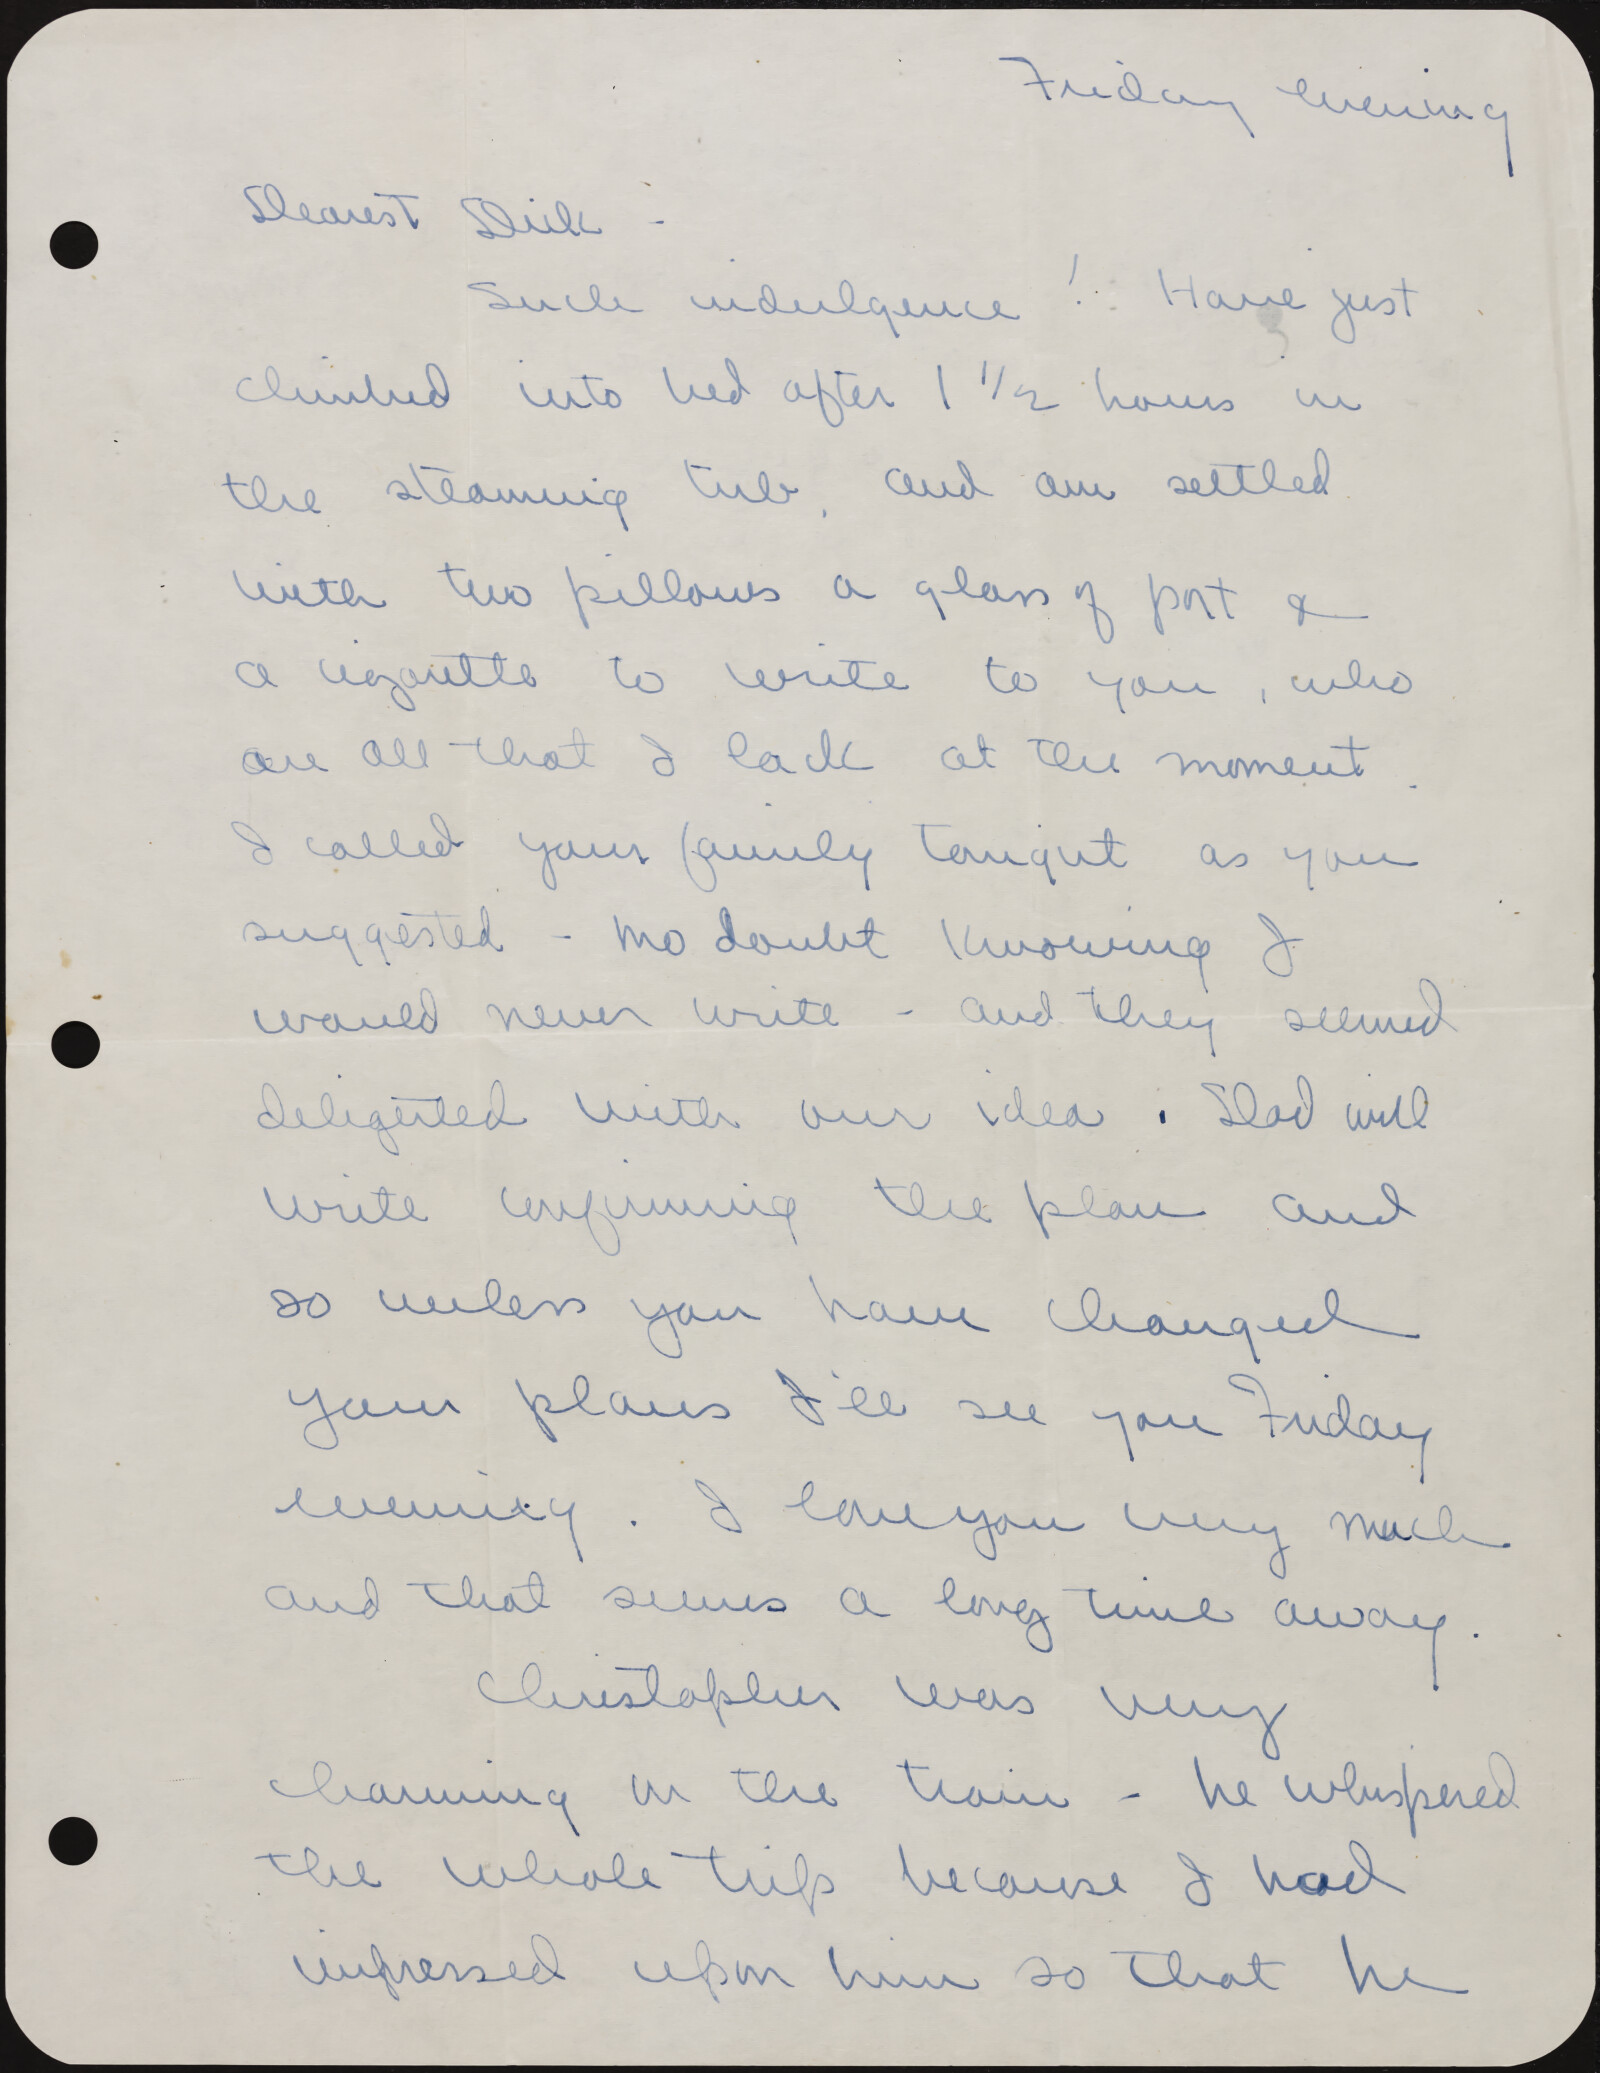 Friday evening
Dearest Dick -
Such indulgence! Have just
climbed into bed after 1 1/2 hours in
the steaming tub, and am settled
with two pillows a glass of port &
a cigarette to write to you, who
are all that I lack at the moment.
I called your family tonight as you
suggested - no doubt knowing I
would never write - and they seemed
delighted with our idea. Dad will
write confirming the plan and
so unless you have changed
your plans I'll see you Friday
evening. I love you very much
and that seems a long time away.
Christopher was very
charming on the train - he whispered
the whole trip because I had
impressed upon him so that he